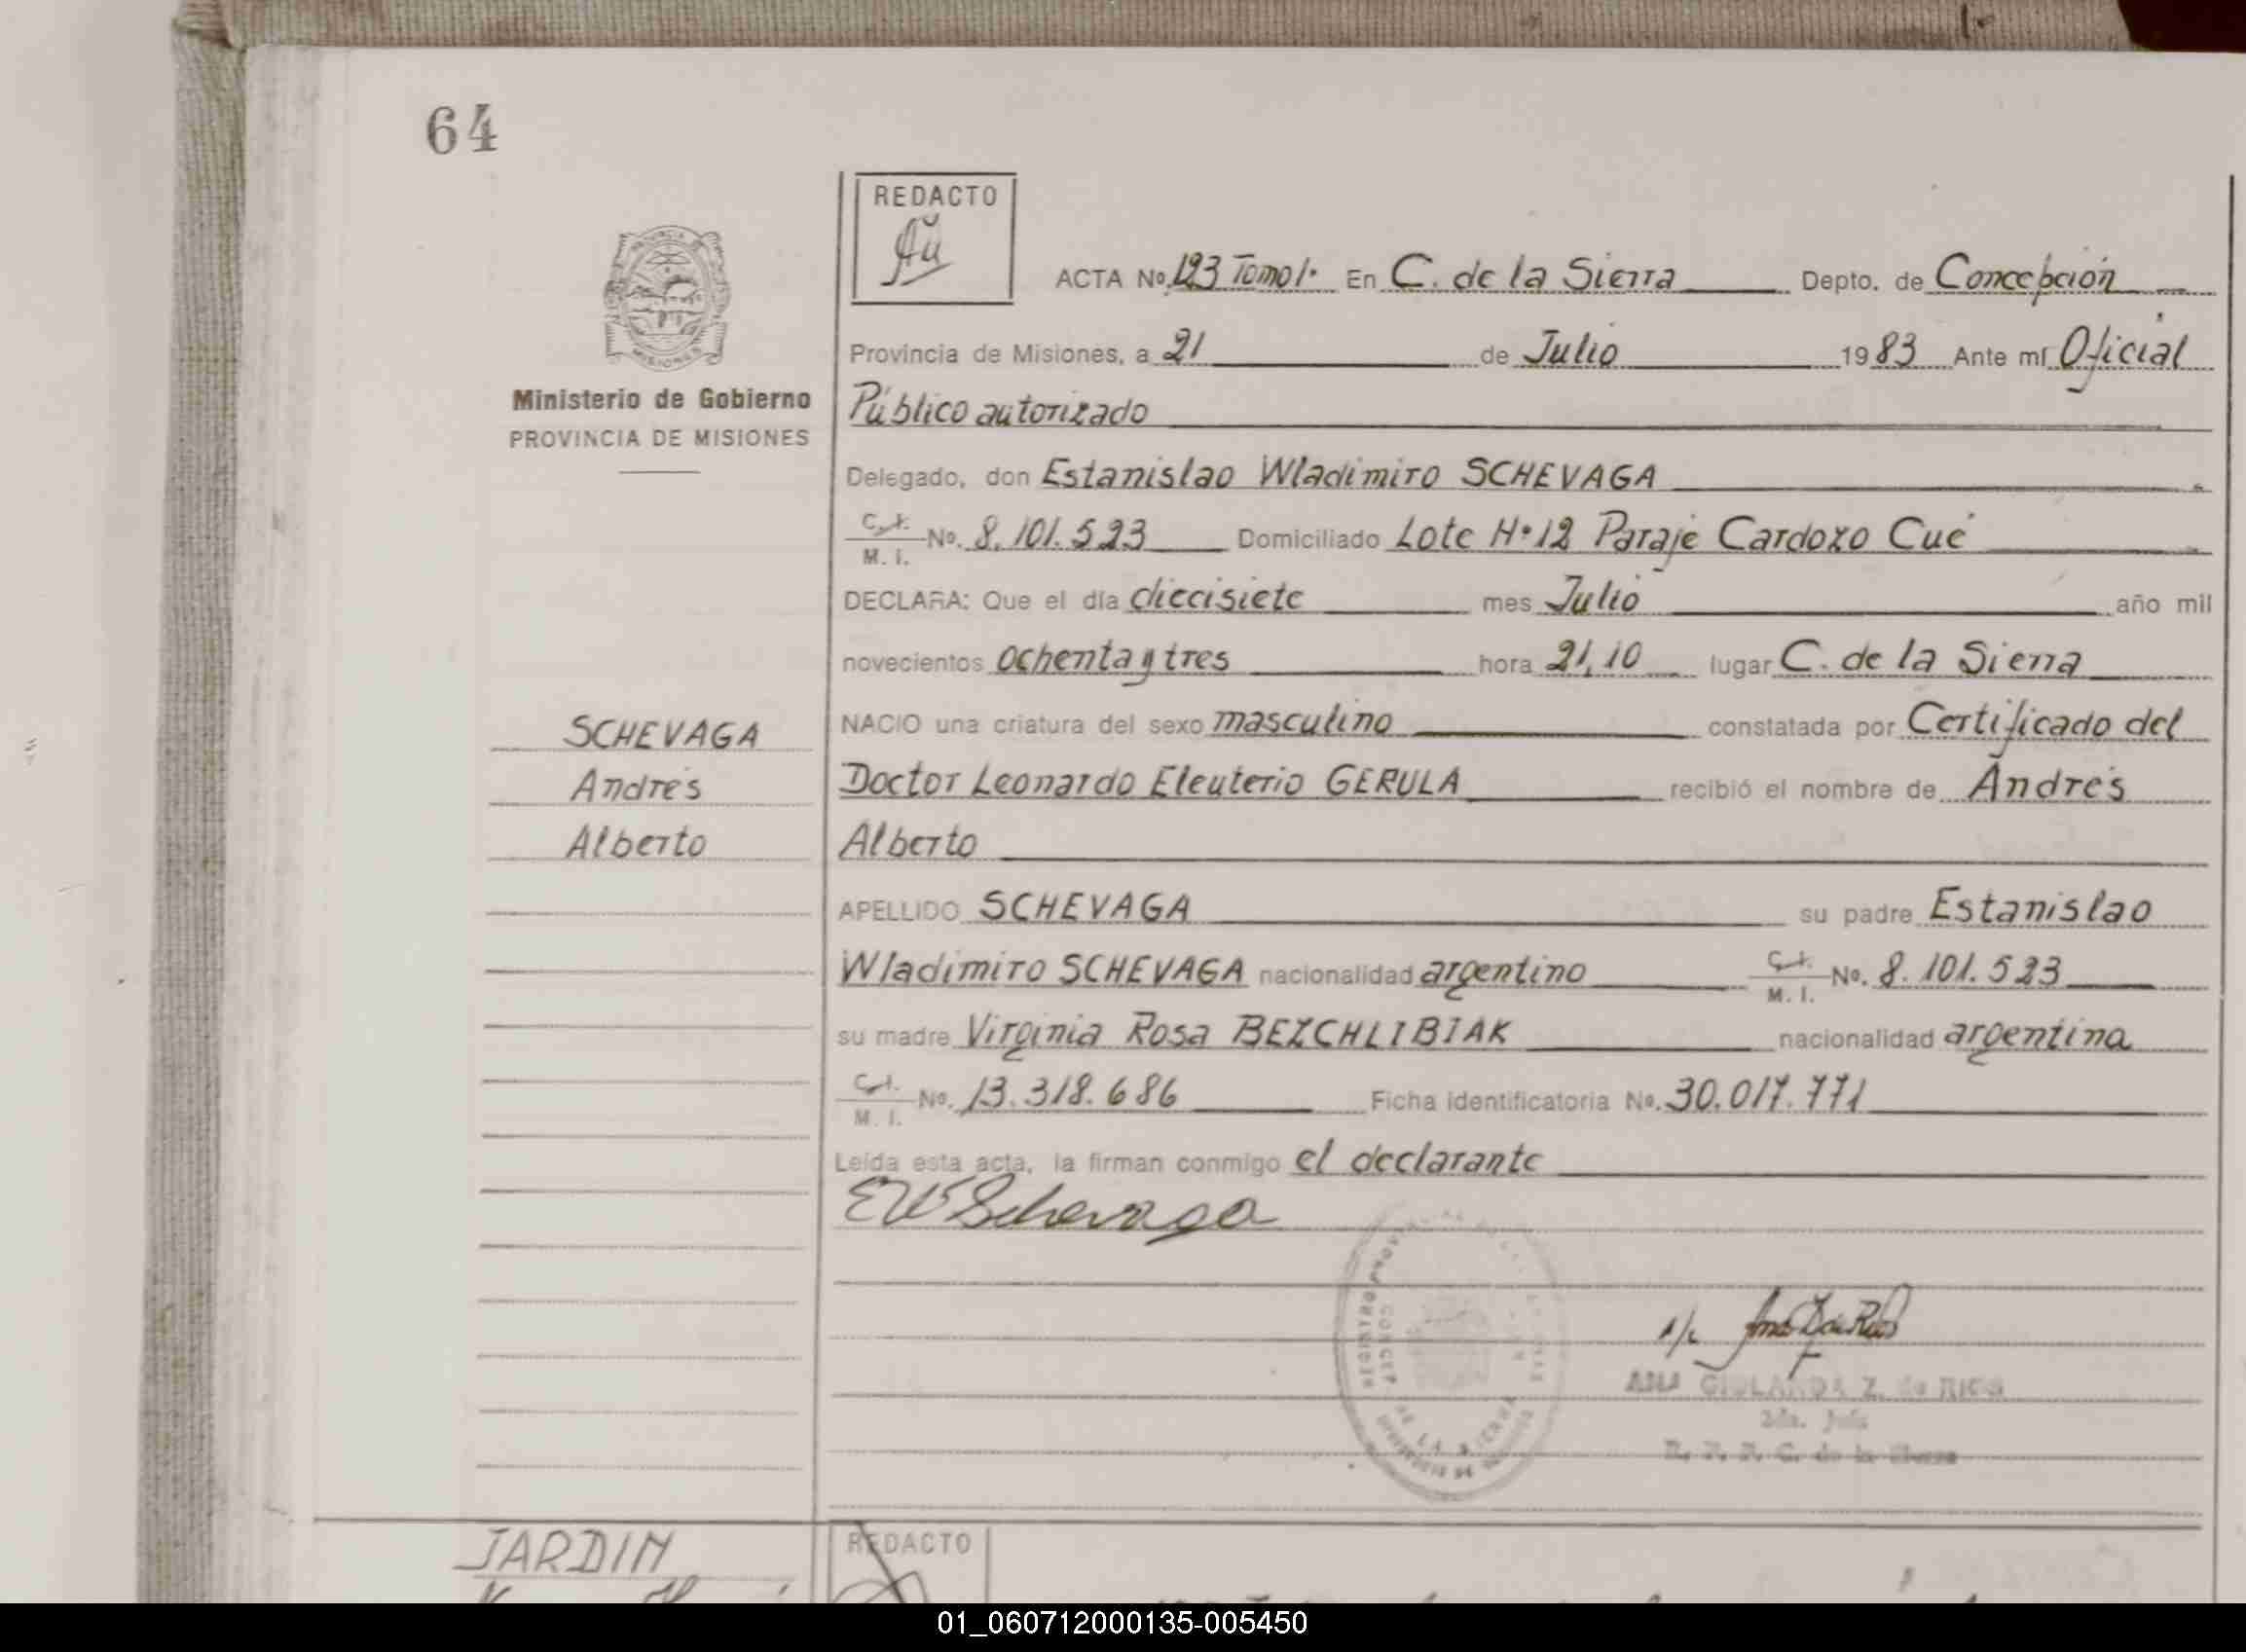 64
REDACTO
ACTA No. 123 Tomo 1. En C. de la Sierra Depto. de Concepción
Provincia de Misiones, a 21 de Julio 1983 Ante mí Oficial
Ministerio de Gobierno
PROVINCIA DE MISIONES
Público autorizado
Delegado, don Estanislao Wladimiro SCHEVAGA
C.I. M. I. No. 8.101.523 Domiciliado Lote Nº 12 Paraje Cardozo Cué
DECLARA: Que el día diecisiete mes Julio año mil
novecientos ochenta y tres hora 21,10 lugar C. de la Sierra
NACIO una criatura del sexo masculino constatada por Certificado del
Doctor Leonardo Eleuterio GERULA recibió el nombre de Andrés
Alberto
SCHEVAGA
Andrés
Alberto
APELLIDO SCHEVAGA su padre Estanislao
Wladimiro SCHEVAGA nacionalidad argentino C.I. M. I. No. 8.101.523
su madre Virginia Rosa BEZCHLIBIAK nacionalidad argentina
C.I. M. I. No. 13.318.686 Ficha identificatoria No. 30.017.771
Leída esta acta, la firman conmigo el declarante
EWSchevaga
REGISTRO PROVINCIAL
CONCEP. DE LA SIERRA
a/c
Z. de RIOS
C. de la Sierra
JARDIN
REDACTO
01_060712000135-005450